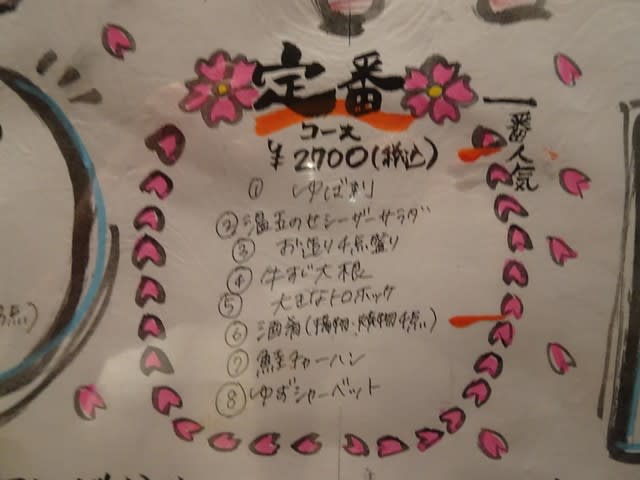 定番
コース
¥2700(税込)
一番人気
① ゆば刺
② 温玉のせシーザーサラダ
③ お造り4点盛り
④ 牛すじ大根
⑤ 大きなトロホッケ
⑥ 酒肴(揚物、焼物4点)
⑦ 鮭チャーハン
⑧ ゆずシャーベット
点)